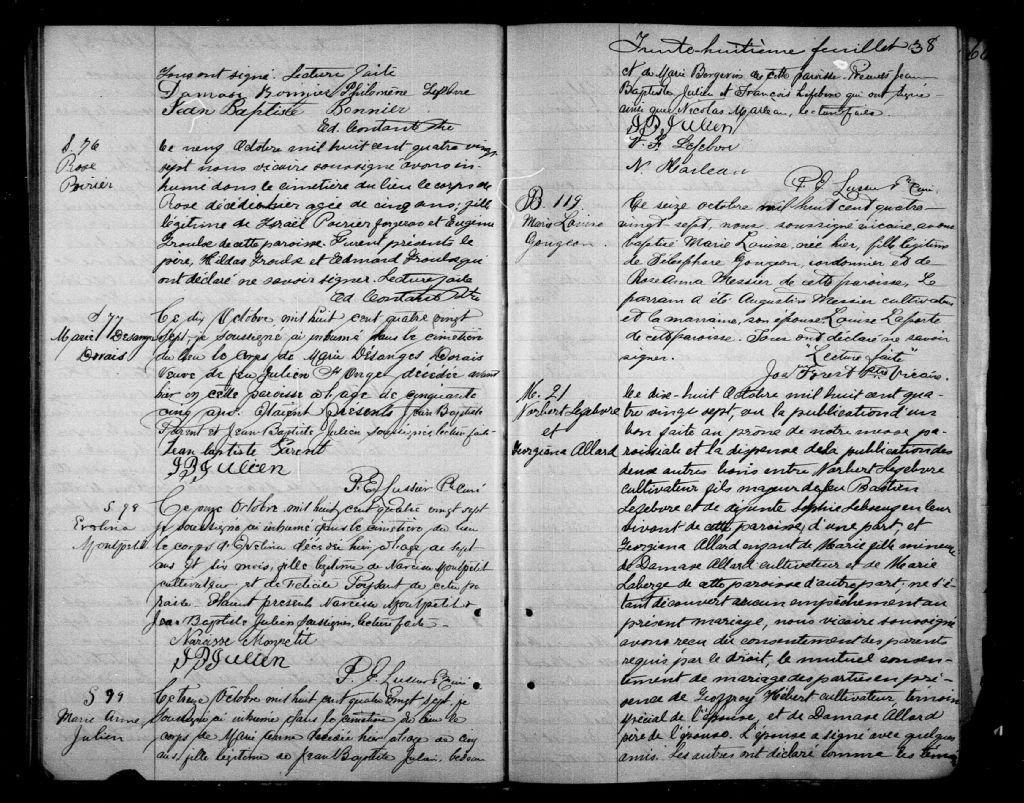 Tous ont signé. Lecture faite
Damase Bonnier Philomène Lefebvre
Jean Baptiste Bonnier
Ed. Constant Ptre
S. 76
Rose
Poirier
Ce neuf Octobre mil huit cent quatre vingt
sept nous vicaire soussigné avons in-
humé dans le cimetière du lieu le corps de
Rose décédée hier agée de cinq ans; fille
légitime de Israël Poirier forgeron et Eugénie
Groulx de cette paroisse. Furent présents le
père, Hildas Groulx et Edmond Groulx qui
ont déclaré ne savoir signer. Lecture faite
Ed Constant Ptre
S 77
Marie Desanges
Dorais
Ce dix Octobre mil huit cent quatre vingt
sept je soussigné ai inhumé dans le cimetière
du lieu le corps de Marie Desanges Dorais
veuve de feu Julien St Onge décédée avant
hier en cette paroisse à l'age de cinquante
cinq ans. Etaient présents Jean Baptiste
Parent et Jean-Baptiste Julien soussignés, lecture faite
Jean baptiste Parent
J B Julien
P. E. Lussier Ptre Curé
S. 98
Evelina
Montpetit
Ce onze Octobre mil huit cent quatre vingt sept
je soussigné ai inhumé dans le cimetière du lieu
le corps d'Evelina décédée hier, à l'age de sept
ans et six mois, fille légitime de Narcisse Montpetit
cultivateur et de Félicité de cette pa
roisse. Etaient présents Narcisse Montpetit et
Jean Baptiste Julien soussignés, lecture faite -
Narcisse Monpetit
J B Julien
P. E. Lussier Ptre Curé
S 99
Marie Anne
Julien
Ce treize Octobre mil huit cent quatre vingt sept, je
soussigné ai inhumé dans le cimetière de lieu le
corps de Marie Anne décédée hier à l'age de cinq
ans fille légitime de Jean Baptiste Julien, bedeau
Trente-huitième feuillet 38
et de Marie Bergevin de cette paroisse. Présents Jean
Baptiste Julien et François Lefebvre qui ont signé
ainsi que Nicolas Marleau, lecture faite.
J B Julien
F Lefebvre
N. Marleau
P. E. Lussier Ptre Curé.
B 119
Marie Louise
Gougeon
Ce seize octobre mil huit cent quatre-
vingt-sept, nous, soussigné vicaire, avons
baptisé Marie Louise, née hier, fille légitime
de Télesphore Gougeon, cordonnier et de
Rose Anna Messier de cette paroisse. Le
parrain a été Augustin Messier cultivateur
et la marraine, son épouse, Louise Laporte
de cette paroisse. Tous ont déclaré ne savoir
signer.
"Lecture faite"
Jos Forest Ptre Vicaire.
M. 21
Norbert Lefebvre
et
Georgiana Allard
Le dix-huit Octobre mil huit cent qua-
tre vingt sept, vu la publication d'un
ban faite au prône de notre messe pa-
roissiale et la dispense de la publication des
deux autres bans entre Norbert Lefebvre
cultivateur fils majeur de feu Bastien
Lefebvre et de défunte Sophie en leur
vivant de cette paroisse, d'une part, et
Georgiana Allard enfant de Marie fille mineure
de Damase Allard cultivateur et de Marie
Laberge de cette paroisse d'autre part, ne s'é-
tant découvert aucun empêchement au
présent mariage, nous vicaire soussigné
avons reçu du consentement des parents
requis par le droit, le mutuel consen-
tement de mariage des parties en pré-
sence de Geoffroy Hébert cultivateur témoin
spécial de l'époux, et de Damase Allard
père de l'épouse. L'épouse a signé avec quelques
amis. Les autres ont déclaré comme les témoins